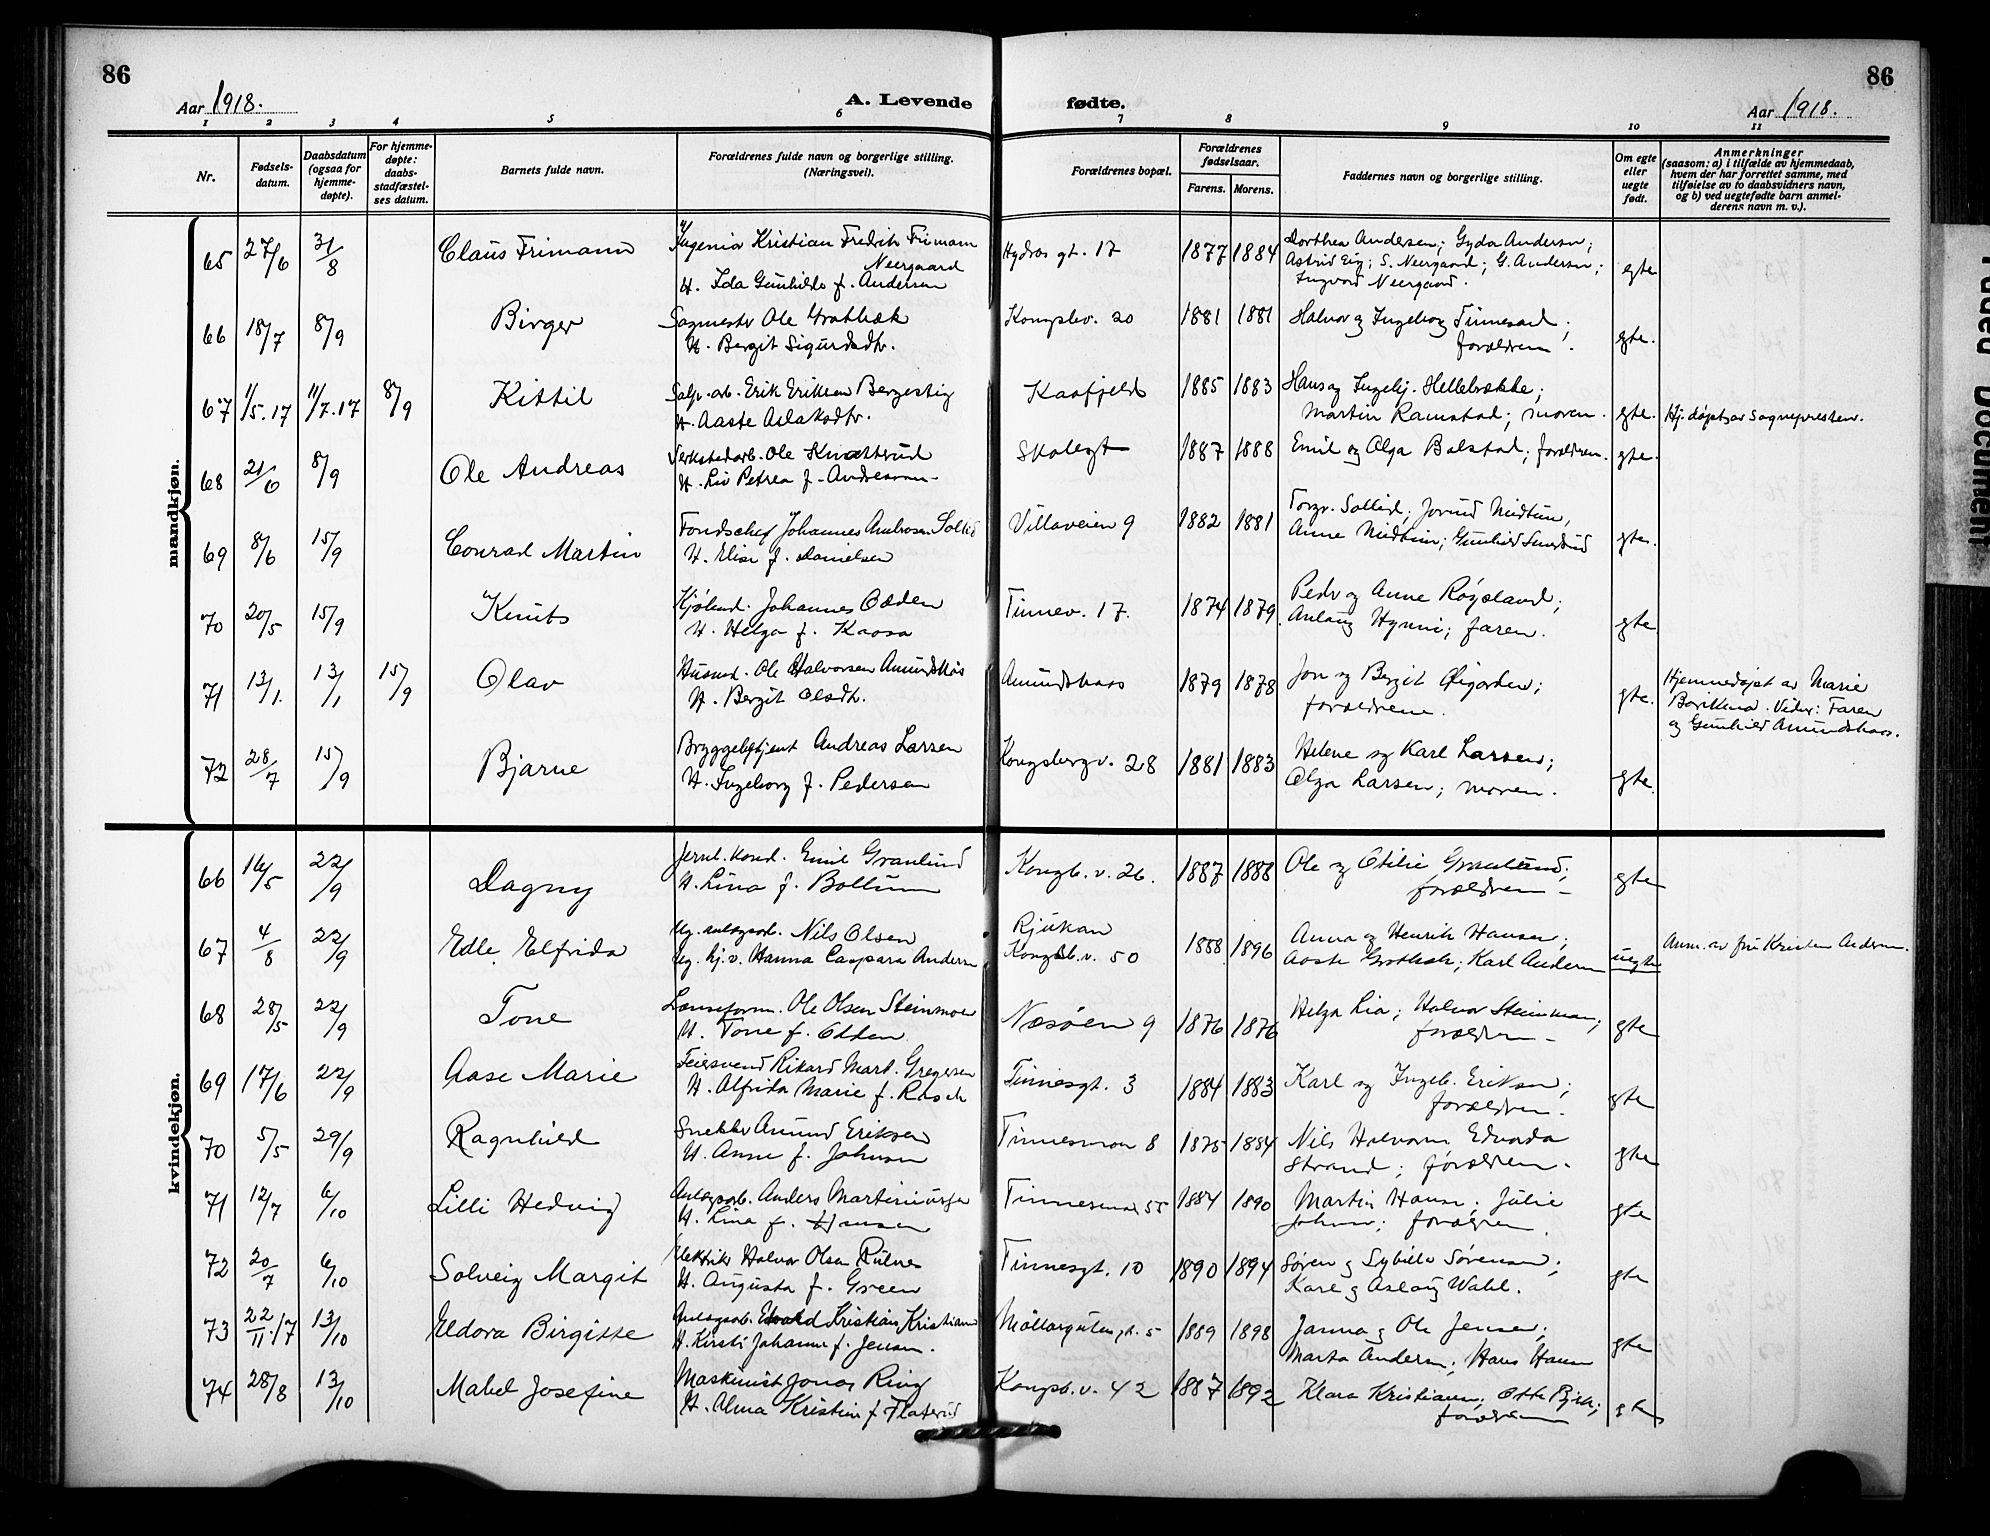 86
86
Aar 1918.
A. Levende
fødte.
Aar 1918.
1 2 3 4 5 6 7 8 9 10 11
Nr.
Fødsels-
datum.
Daabsdatum
(ogsaa for
hjemme-
døpte).
For hjemme-
døpte:
daabs-
stadfæstel-
ses datum.
Barnets fulde navn.
Forældrenes fulde navn og borgerlige stilling.
(Næringsvei).
Forældrenes bopæl.
Forældrenes
fødselsaar.
Farens. Morens.
Faddernes navn og borgerlige stilling.
Om egte
eller
uegte
født.
Anmerkninger
(saasom: a) i tilfælde av hjemmedaab,
hvem der har forrettet samme, med
tilføielse av to daabsvidners navn,
og b) ved uegtefødte barn anmel-
derens navn m. v.).
mandkjøn.
65 27/6 31/8 Claus Frimann
Ingeniør Kristian Fredrik Frimann
Neergaard
H. Ida Gunhilde f. Andersen
Hydros gt. 17 1877 1884
Dorthea Andersen; Gyda Andersen;
Astrid Eig; S. Neergaard; G. Andersen;
Ingvard Neergaard.
egte
66 18/7 8/9 Birger
Ole Grotbæk
H. Bergit Sigurdsdtr.
Kongsbv. 20 1881 1881
Halvor og Ingeborg Tinnesand;
forældrene.
egte.
67 1/5.17 11/7.17 8/9 Kittil
Salp. arb. Erik Eriksen Bergestig
H. Aaste Aslaksdtr.
Kaafjeld 1885 1883
Hans og Ingebj. Hellebække;
Martin Ramstad; moren.
egte.
Hj. døpt av Sognepresten.
68 21/6 8/9 Ole Andreas
Verkstedarb. Ole Knatterud
H. Liv Petrea f. Andresen
Skolegt 1887 1888
Emil og Olga Bolstad; forældren.
egte.
69 8/6 15/9 Conrad Martin
Fondschef Johannes Ambrosen Sollid
H. Elise f. Danielsen
Villaveien 9 1882 1881
Torgr. Sollid; Jorund Midtun,
Anne Midtun; Gunhild
egte.
70 20/5 15/9 Knut
Kjøbmd. Johannes Odden
H. Helga f. Kaasa
Tinnev. 17. 1874 1879
Peder og Anne Røysland;
Anlaug Hynni; faren.
egte.
71 13/1. 13/1 15/9 Olav
Husmd. Ole Halvorsen Amundshaas
H. Bergit Olsdtr.
Amundshaas 1879 1878
Jon og Bergit Øigarden;
forældrene.
egte.
Hjemmedøpt av Marie
Bavikmo. Vidner: Faren
og Gunhild Amundshaas.
72 28/7 15/9 Bjarne
Andreas Larsen
H. Ingeborg f. Pedersen
Kongsbergv. 28 1881 1883
Helene og Karl Larsen;
Olga Larsen; moren.
egte.
kvindekjøn.
66 16/5 22/9 Dagny
Jernb. Emil Granlund
H. Lina f. Bollum
Kongsb. v. 26. 1887 1888
Ole og Otilie Granlund;
forældrene
egte
67 4/8 22/9 Edle Elfrida
Ug. anlægsarb. Nils Olsen
Ug. hj. v. Hanna Caspara Andersen
Rjukan
Kongsb. v. 50 1888 1896
Anna og Henrik Hansen;
Aaste Grotbæk; Karl Andersen
uegte
Anm. av fru Kristen Andersen.
68 28/5 22/9 Tone
Ole Olsen Steinmoen
H. Tone f. Odden
Næsøen 9 1876 1876
Helga Lia; Halvor Steinmoen;
forældren
egte
69 17/6 22/9 Aase Marie
Feiersvend Rikard Mart. Gregersen
H. Alfrida Marie f. Rasch
Tinnesgt. 3 1884 1883
Karl og Ingeb. Eriksen;
forældren.
egte
70 5/5 29/9 Ragnhild
Snekker Amund Eriksen
H. Anne f. Johnsen
Tinnesmoen 8 1875 1884
Nils Halvorsen Edvarda
Strand; forældren.
egte
71 12/7 6/10 Lilli Hedvig
Anlægsarb. Anders Martiniusen
H. Lina f. Hansen
Tinnesmoen 55 1884 1890
Martin Hansen; Julie
Johnsen; forældren.
egte
72 20/7 6/10 Solveig Margit
Elektriker Halvor Olsen Rulnes
H. Augusta f. Green
Tinnesgt. 10 1890 1894
Søren og Sybille Sørensen;
Karl og Aslaug Wahl.
egte
73 22/11.17 13/10 Eldora Birgitte
Anlægsarb. Edvald Kristian Kristiansen
H. Kirsti Johanne f. Jensen.
Møllargutens gt. 5 1889 1898
Janna og Ole Jensen;
Marta Andersen; Hans Hansen
egte
74 28/8 13/10 Mabel Josefine
Maskinist Jonas Ring
H. Alma Kristine f. Flaterud
Kongsb. v. 42 1887 1892
Klara Kristiansen; Otto
forældrene
egte
Faded Document